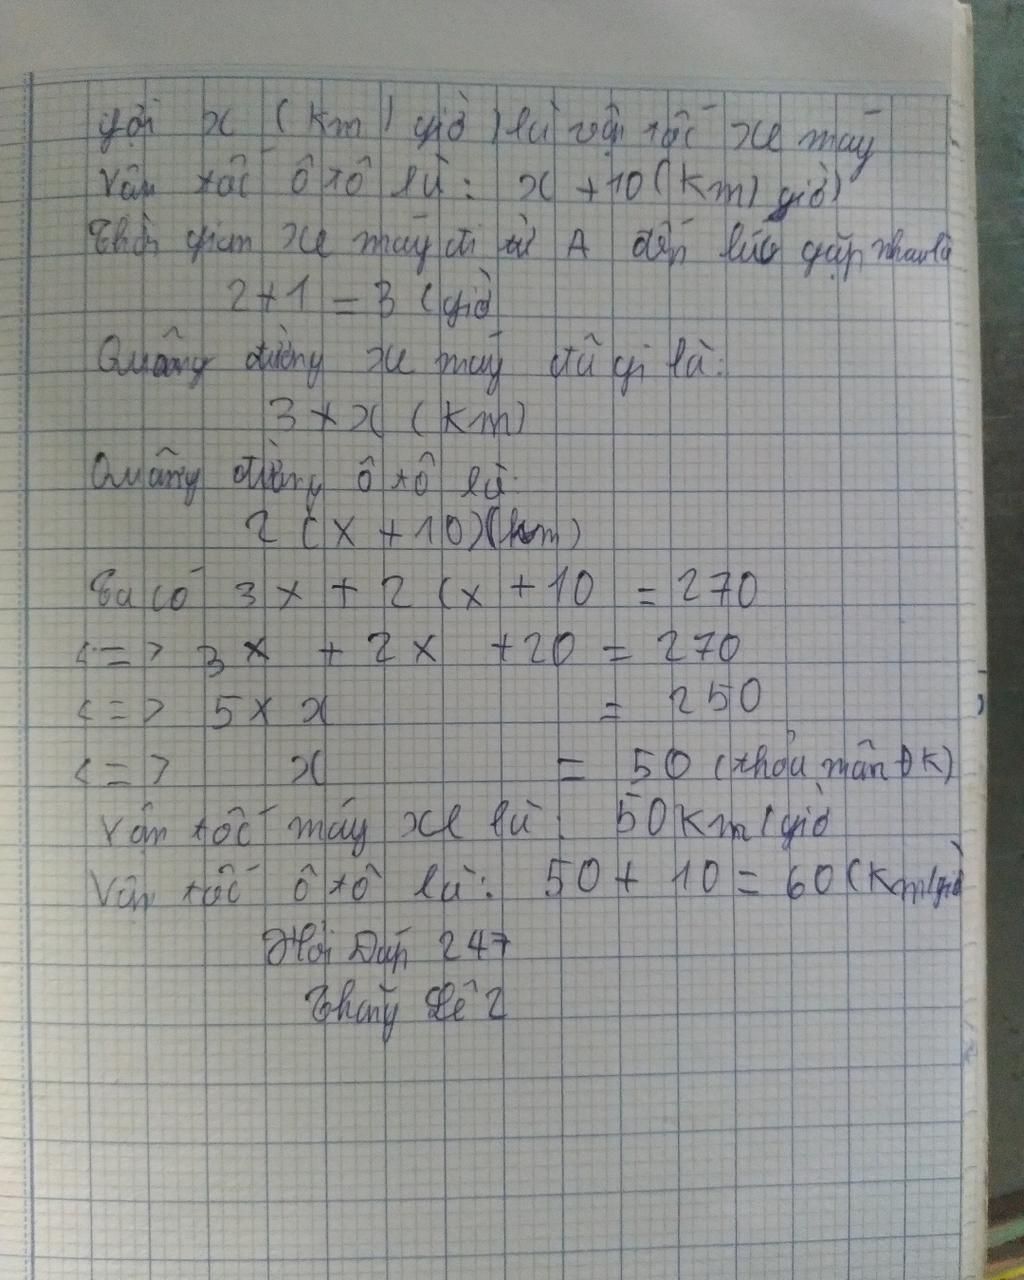 Gọi x (km/giờ) là vận tốc xe máy
Vận tốc ô tô là: x + 10 (km/giờ)
Thời gian xe máy đi từ A đến lúc gặp nhau là
2 + 1 = 3 (giờ
Quãng đường xe máy đã đi là:
3 x x (km)
Quãng đường ô tô là:
2 (x + 10)(km)
Ta có 3x + 2 (x + 10 = 270
<=> 3x + 2x + 20 = 270
<=> 5 x x = 250
<=> x = 50 (thỏa mãn ĐK)
Vận tốc máy xe là: 50 km/giờ
Vận tốc ô tô là: 50 + 10 = 60 (km/giờ
Hỏi Đáp 247